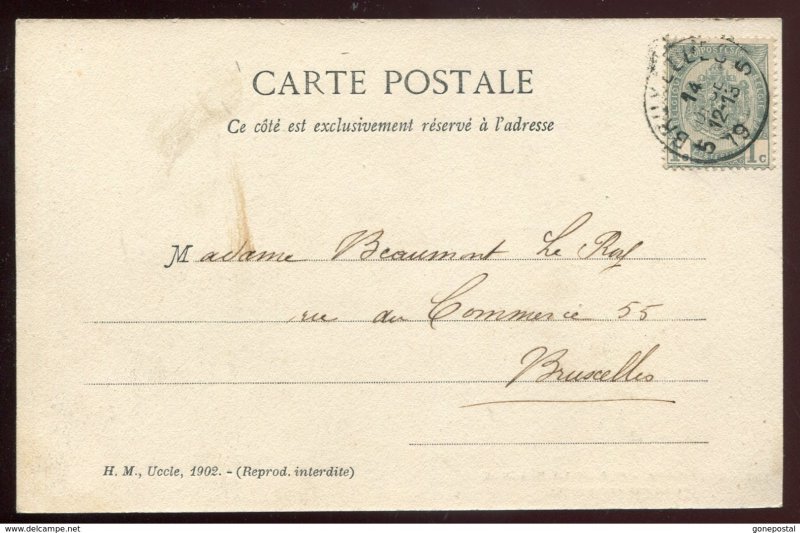 CARTE POSTALE
Ce côté est exclusivement réservé à l'adresse
BRUXELLES 5
14
12-13
19
5
POSTES
1 c 1 c
Madame Beaumont Le Roy
rue du Commerce 55
Bruxelles
H. M., Uccle, 1902. - (Reprod. interdite)
www.hippostcard.com
gonepostal